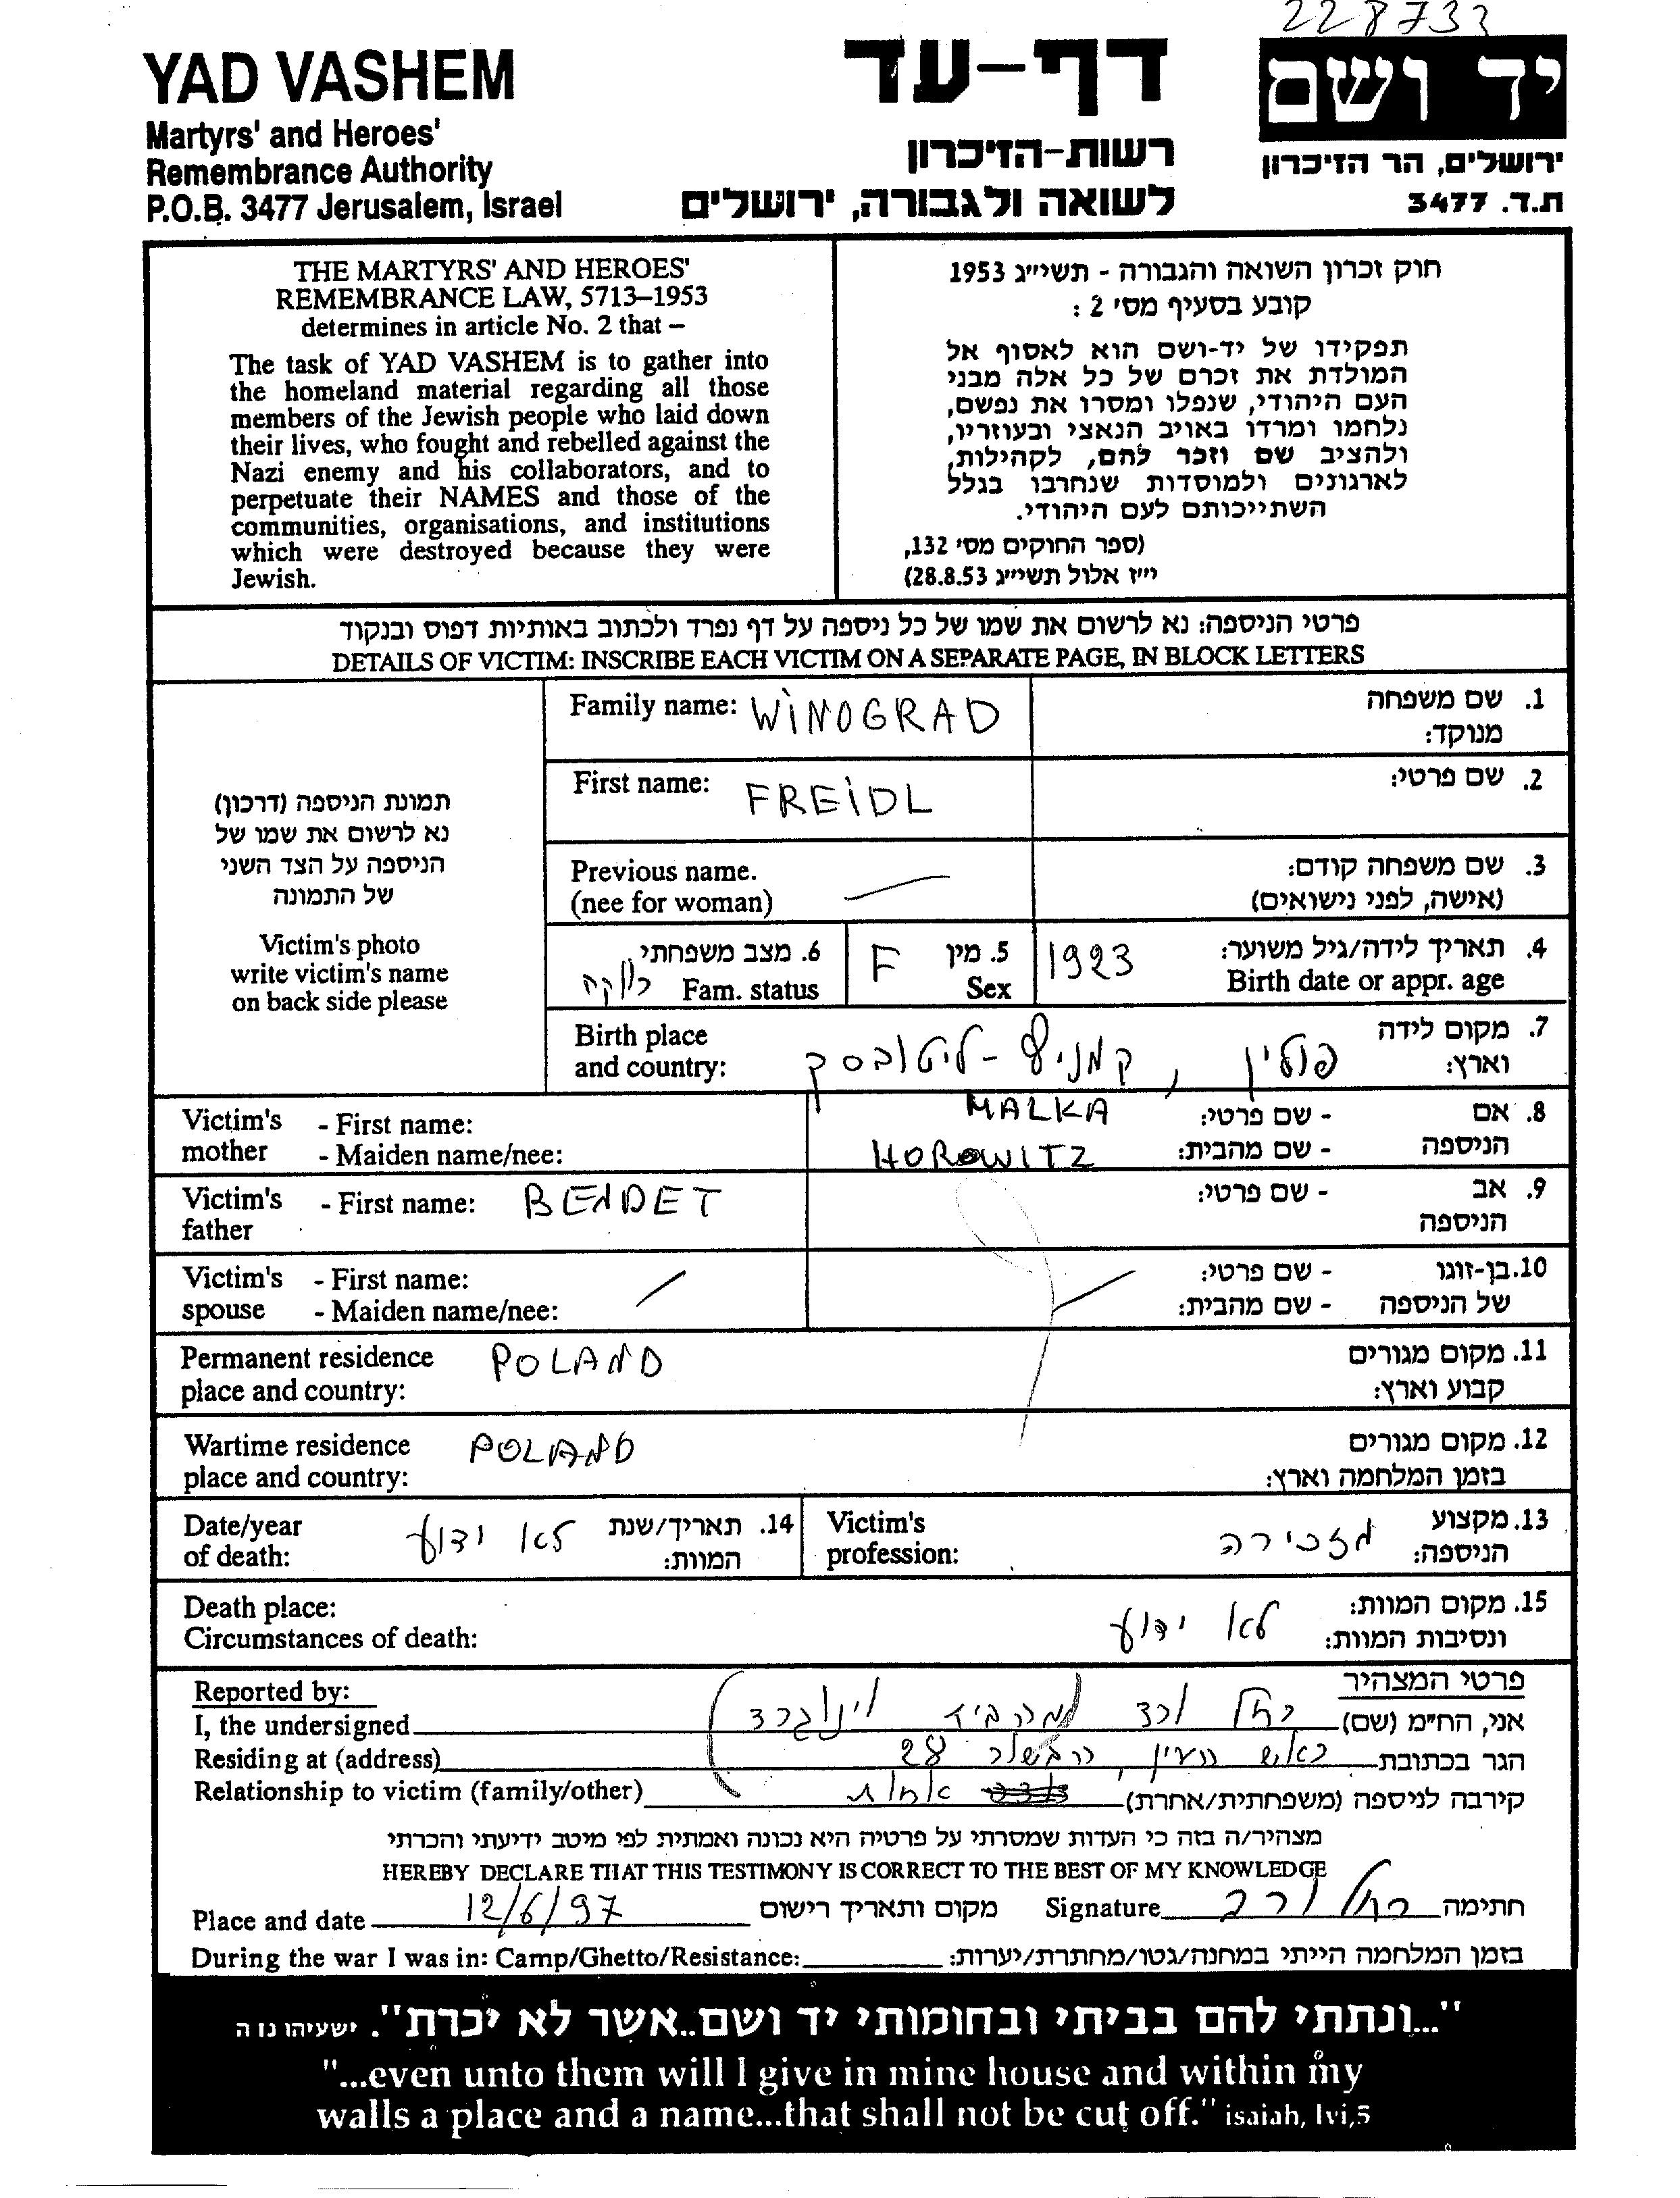 228733
YAD VASHEM
Martyrs' and Heroes'
Remembrance Authority
P.O.B. 3477 Jerusalem, Israel
דף-עד
רשות-הזיכרון
לשואה ולגבורה, ירושלים
יד ושם
ירושלים, הר הזיכרון
ת.ד. 3477
THE MARTYRS' AND HEROES'
REMEMBRANCE LAW, 5713–1953
determines in article No. 2 that –
The task of YAD VASHEM is to gather into
the homeland material regarding all those
members of the Jewish people who laid down
their lives, who fought and rebelled against the
Nazi enemy and his collaborators, and to
perpetuate their NAMES and those of the
communities, organisations, and institutions
which were destroyed because they were
Jewish.
חוק זכרון השואה והגבורה - תשי״ג 1953
קובע בסעיף מס׳ 2 :
תפקידו של יד-ושם הוא לאסוף אל
המולדת את זכרם של כל אלה מבני
העם היהודי, שנפלו ומסרו את נפשם,
נלחמו ומרדו באויב הנאצי ובעוזריו,
ולהציב שם וזכר להם, לקהילות,
לארגונים ולמוסדות שנחרבו בגלל
השתייכותם לעם היהודי.
(ספר החוקים מס׳ 132,
י״ז אלול תשי״ג 28.8.53)
פרטי הניספה: נא לרשום את שמו של כל ניספה על דף נפרד ולכתוב באותיות דפוס ובנקוד
DETAILS OF VICTIM: INSCRIBE EACH VICTIM ON A SEPARATE PAGE, IN BLOCK LETTERS
תמונת הניספה (דרכון)
נא לרשום את שמו של
הניספה על הצד השני
של התמונה
Victim's photo
write victim's name
on back side please
Family name: WINOGRAD
1. שם משפחה
מנוקד:
First name: FREIDL
2. שם פרטי:
Previous name.
(nee for woman)
3. שם משפחה קודם:
(אישה, לפני נישואים)
4. תאריך לידה/גיל משוער:
Birth date or appr. age
1923
5. מין
Sex
F
6. מצב משפחתי
Fam. status
רווקה
Birth place
and country:
7. מקום לידה
וארץ:
פולין, קמניץ-ליטובסק
Victim's - First name:
mother - Maiden name/nee:
MALKA
HOROWITZ
8. אם - שם פרטי:
הניספה - שם מהבית:
Victim's - First name: BENDET
father
9. אב - שם פרטי:
הניספה
Victim's - First name:
spouse - Maiden name/nee:
10. בן-זוגו - שם פרטי:
של הניספה - שם מהבית:
Permanent residence POLAND
place and country:
11. מקום מגורים
קבוע וארץ:
Wartime residence POLAND
place and country:
12. מקום מגורים
בזמן המלחמה וארץ:
Date/year
of death:
לא ידוע
14. תאריך/שנת
המוות:
Victim's
profession:
מזכירה
13. מקצוע
הניספה:
Death place:
Circumstances of death:
לא ידוע
15. מקום המוות:
ונסיבות המוות:
Reported by:
פרטי המצהיר
I, the undersigned
אני, הח״מ (שם) רחל ורד וינוגרד
Residing at (address)
הגר בכתובת ראש העין, 28
Relationship to victim (family/other)
קירבה לניספה (משפחתית/אחרת) אחות
מצהיר/ה בזה כי העדות שמסרתי על פרטיה היא נכונה ואמתית לפי מיטב ידיעתי והכרתי
HEREBY DECLARE THAT THIS TESTIMONY IS CORRECT TO THE BEST OF MY KNOWLEDGE
Place and date 12/6/97 מקום ותאריך רישום
Signature רחל ורד חתימה
During the war I was in: Camp/Ghetto/Resistance:
בזמן המלחמה הייתי במחנה/גטו/מחתרת/יערות:
"...ונתתי להם בביתי ובחומותי יד ושם..אשר לא יכרת". ישעיהו נו ה
"...even unto them will I give in mine house and within my
walls a place and a name...that shall not be cut off." isaiah, lvi,5